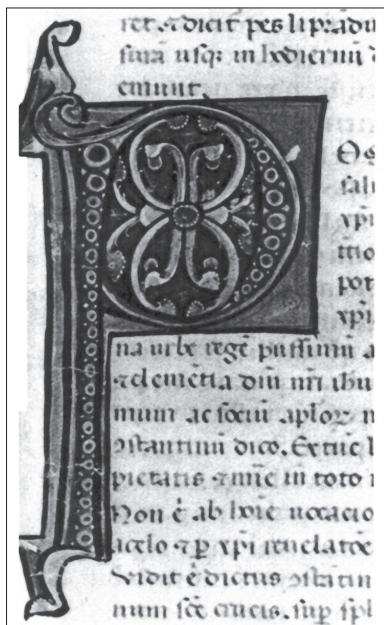 ret. ⁊ dicit̄ pes lipradu
surā usq; in hodiernū d
emiunt.
P
Os
salu
xp̄i
ttio
pot
xp̄i
na urbe regē piissimū a
⁊ clemētia dn̄i nr̄i ihū
mum ac sociū aplōꝝ n
ꝯstantinū dico. Ex tūc
pietatis ⁊ nūc in toto
Non ē ab hoīe uocacio
a celo ⁊ ꝑ xp̄i reuelatōe
Vidit ē dictus ꝯstātin
num sc̄e crucis. sup̄ spl